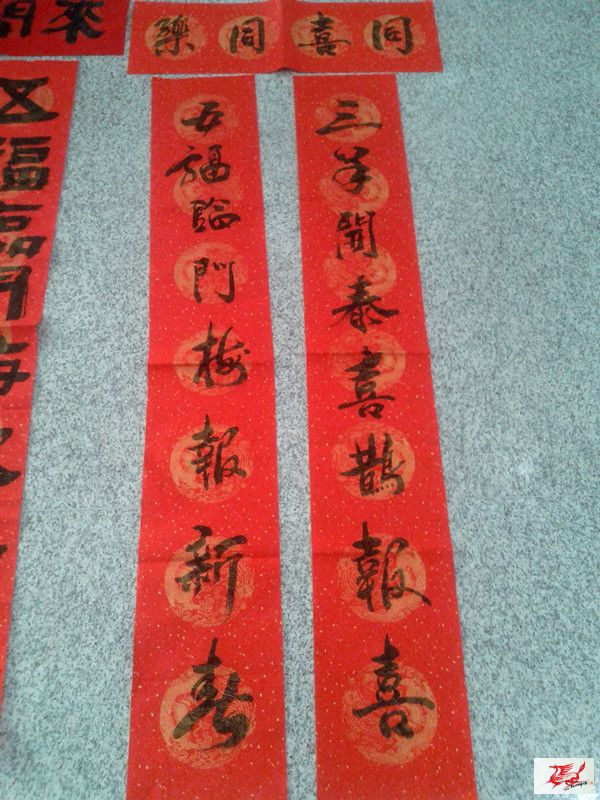 同喜同樂
三羊開泰喜鵲報喜
五福臨門梅報新春
來
五福臨門